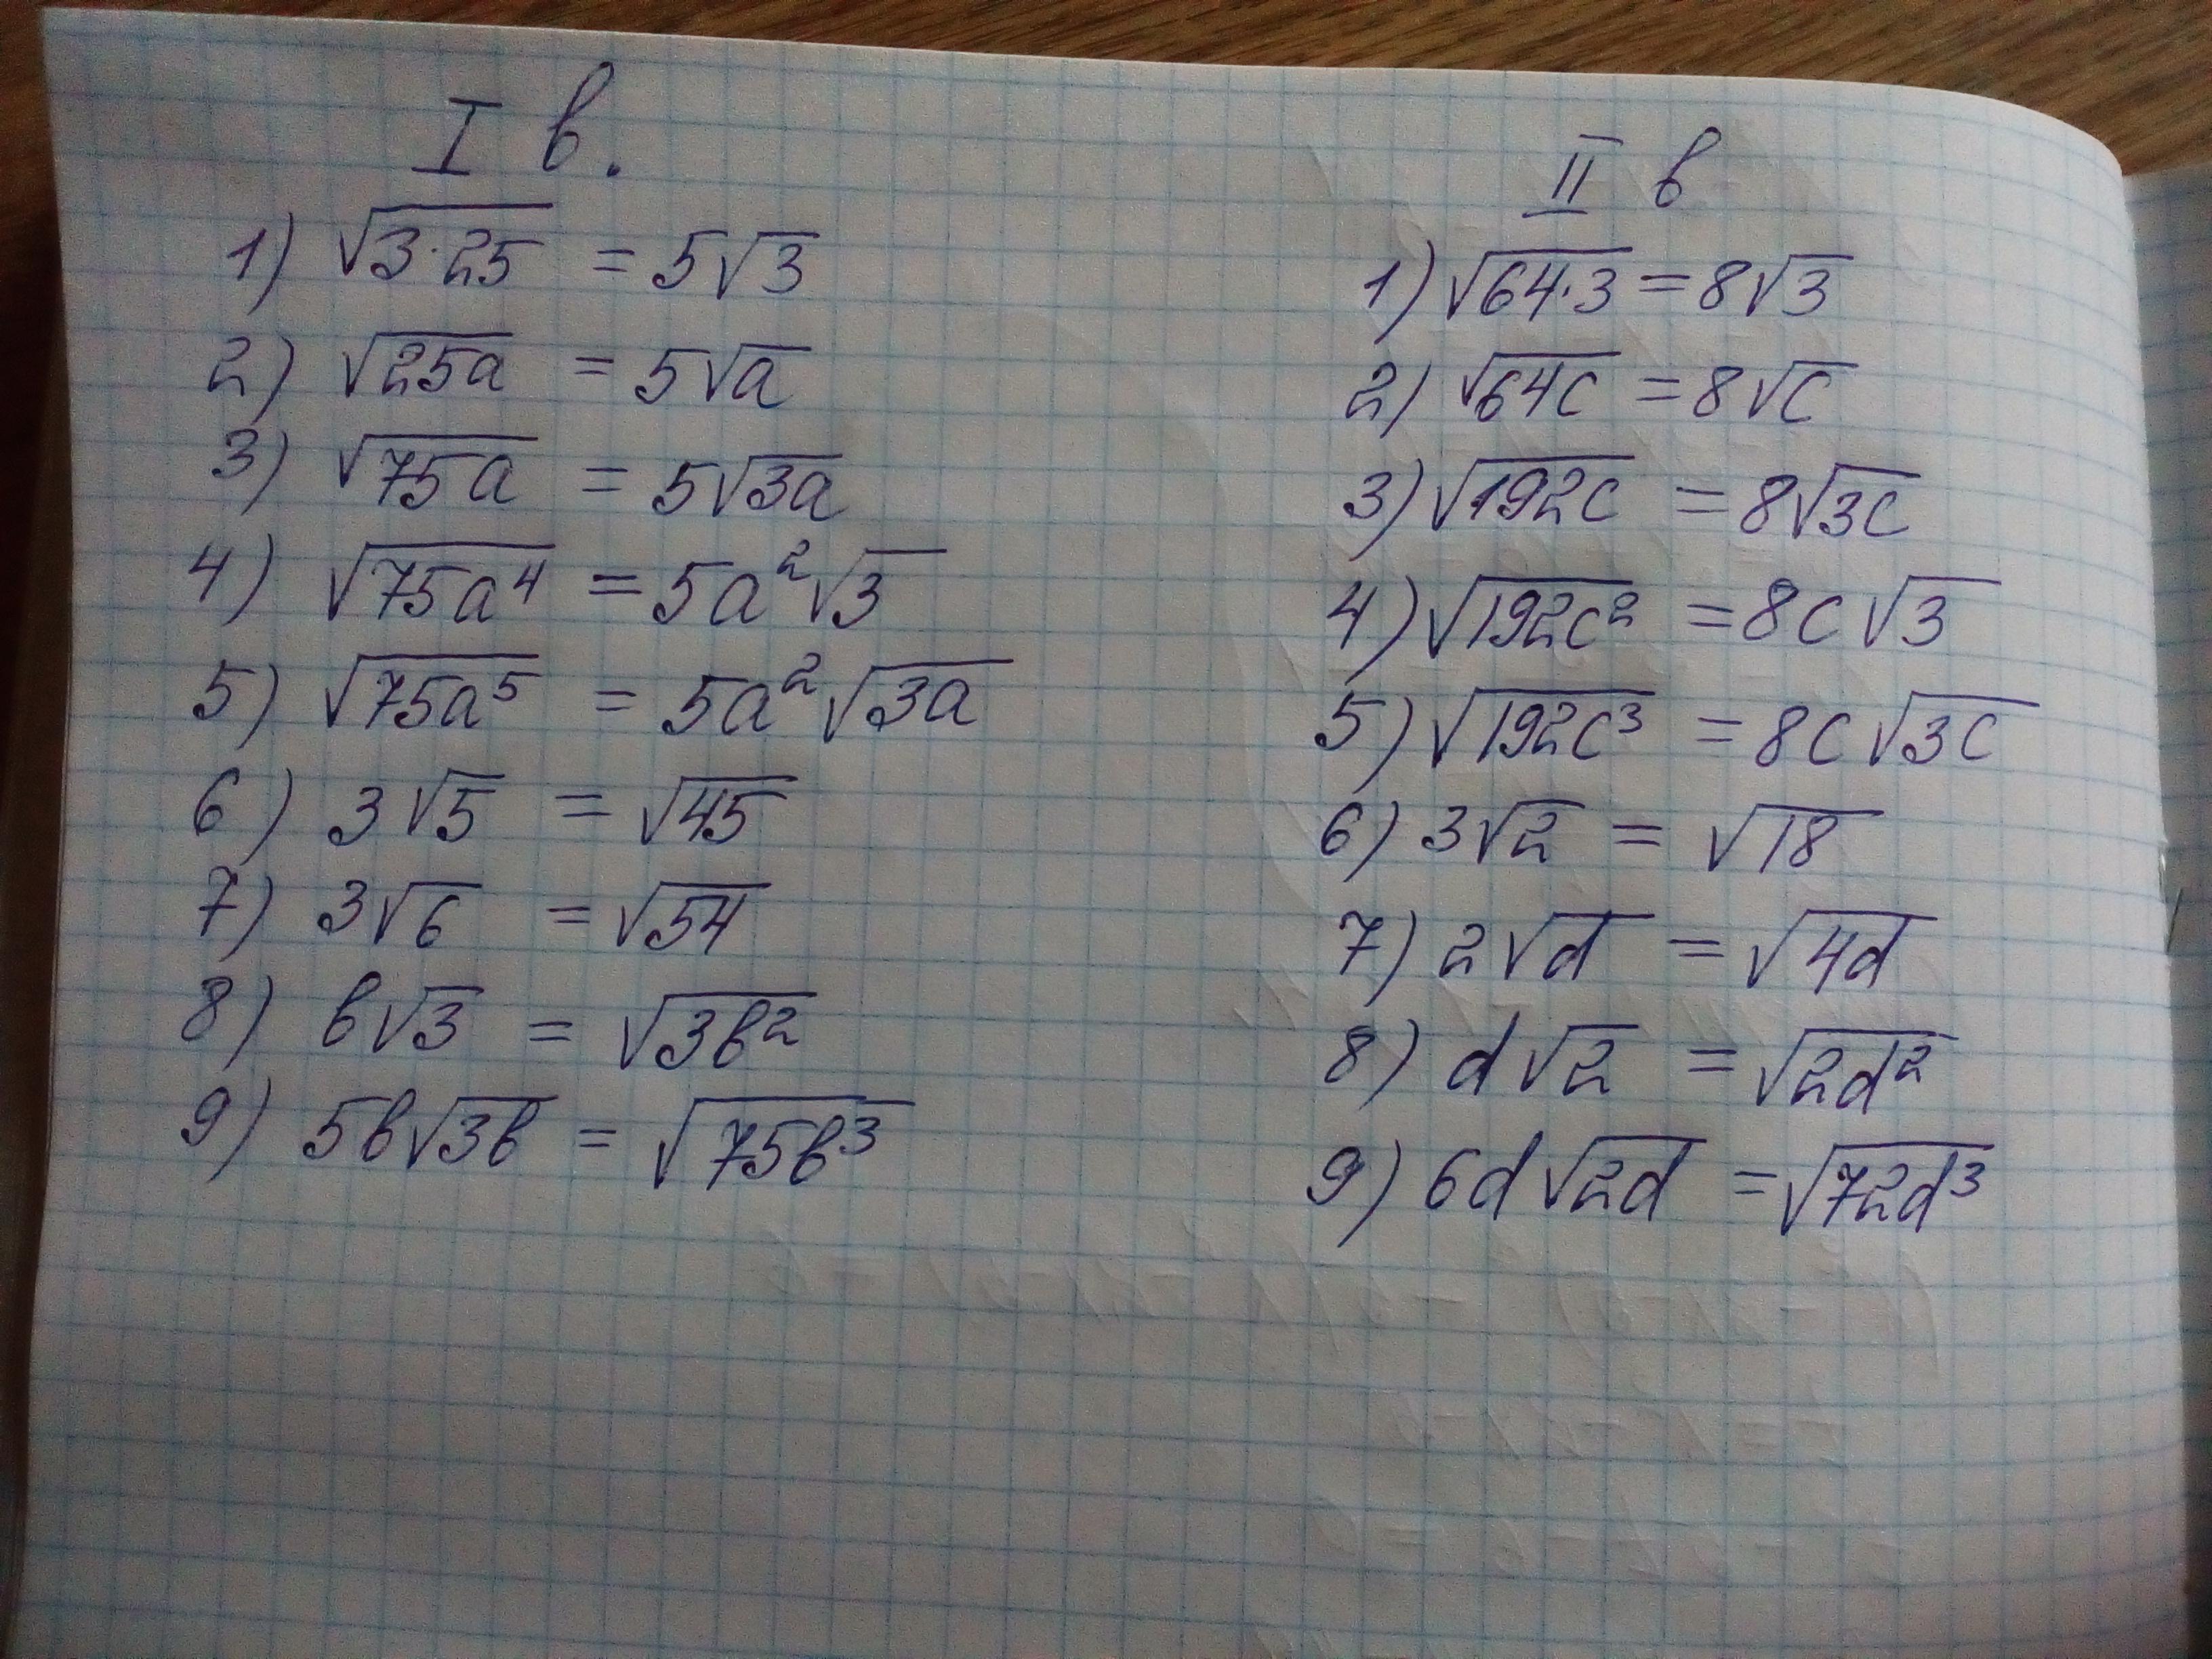 I в.
1) √3·25 = 5√3
2) √25a = 5√a
3) √75a = 5√3a
4) √75a⁴ = 5a²√3
5) √75a⁵ = 5a²√3a
6) 3√5 = √45
7) 3√6 = √54
8) в√3 = √3в²
9) 5в√3в = √75в³
II в
1) √64·3 = 8√3
2) √64c = 8√c
3) √192c = 8√3c
4) √192c² = 8c√3
5) √192c³ = 8c√3c
6) 3√2 = √18
7) 2√d = √4d
8) d√2 = √2d²
9) 6d√2d = √72d³